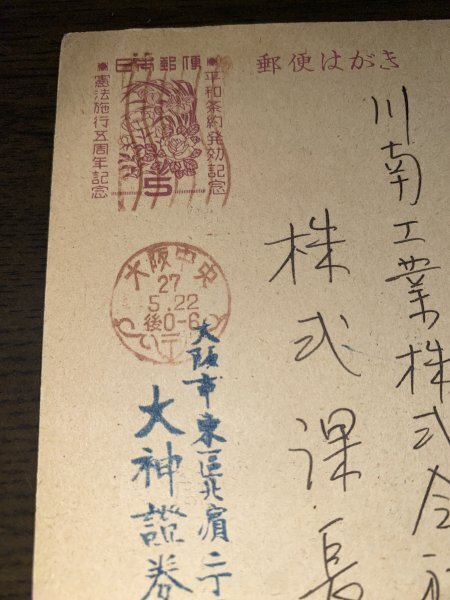 郵便はがき
日本郵便
平和条約発効記念
憲法施行五周年記念
大阪中央
27
5.22
後0-6
川南工業株式会社
株式課長
大阪市東區北濱二丁
大神證券